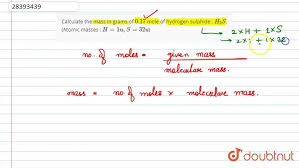 28393439
Calculate the mass in grams of 0.17 mole of hydrogen sulphide, H₂S.
(Atomic masses : H = 1u, S = 32u)
→ 2×H + 1×S
→ 2×1 + 1×32
no. of moles = given mass
molecular mass.
mass = no of moles × molecular mass.
doubtnut